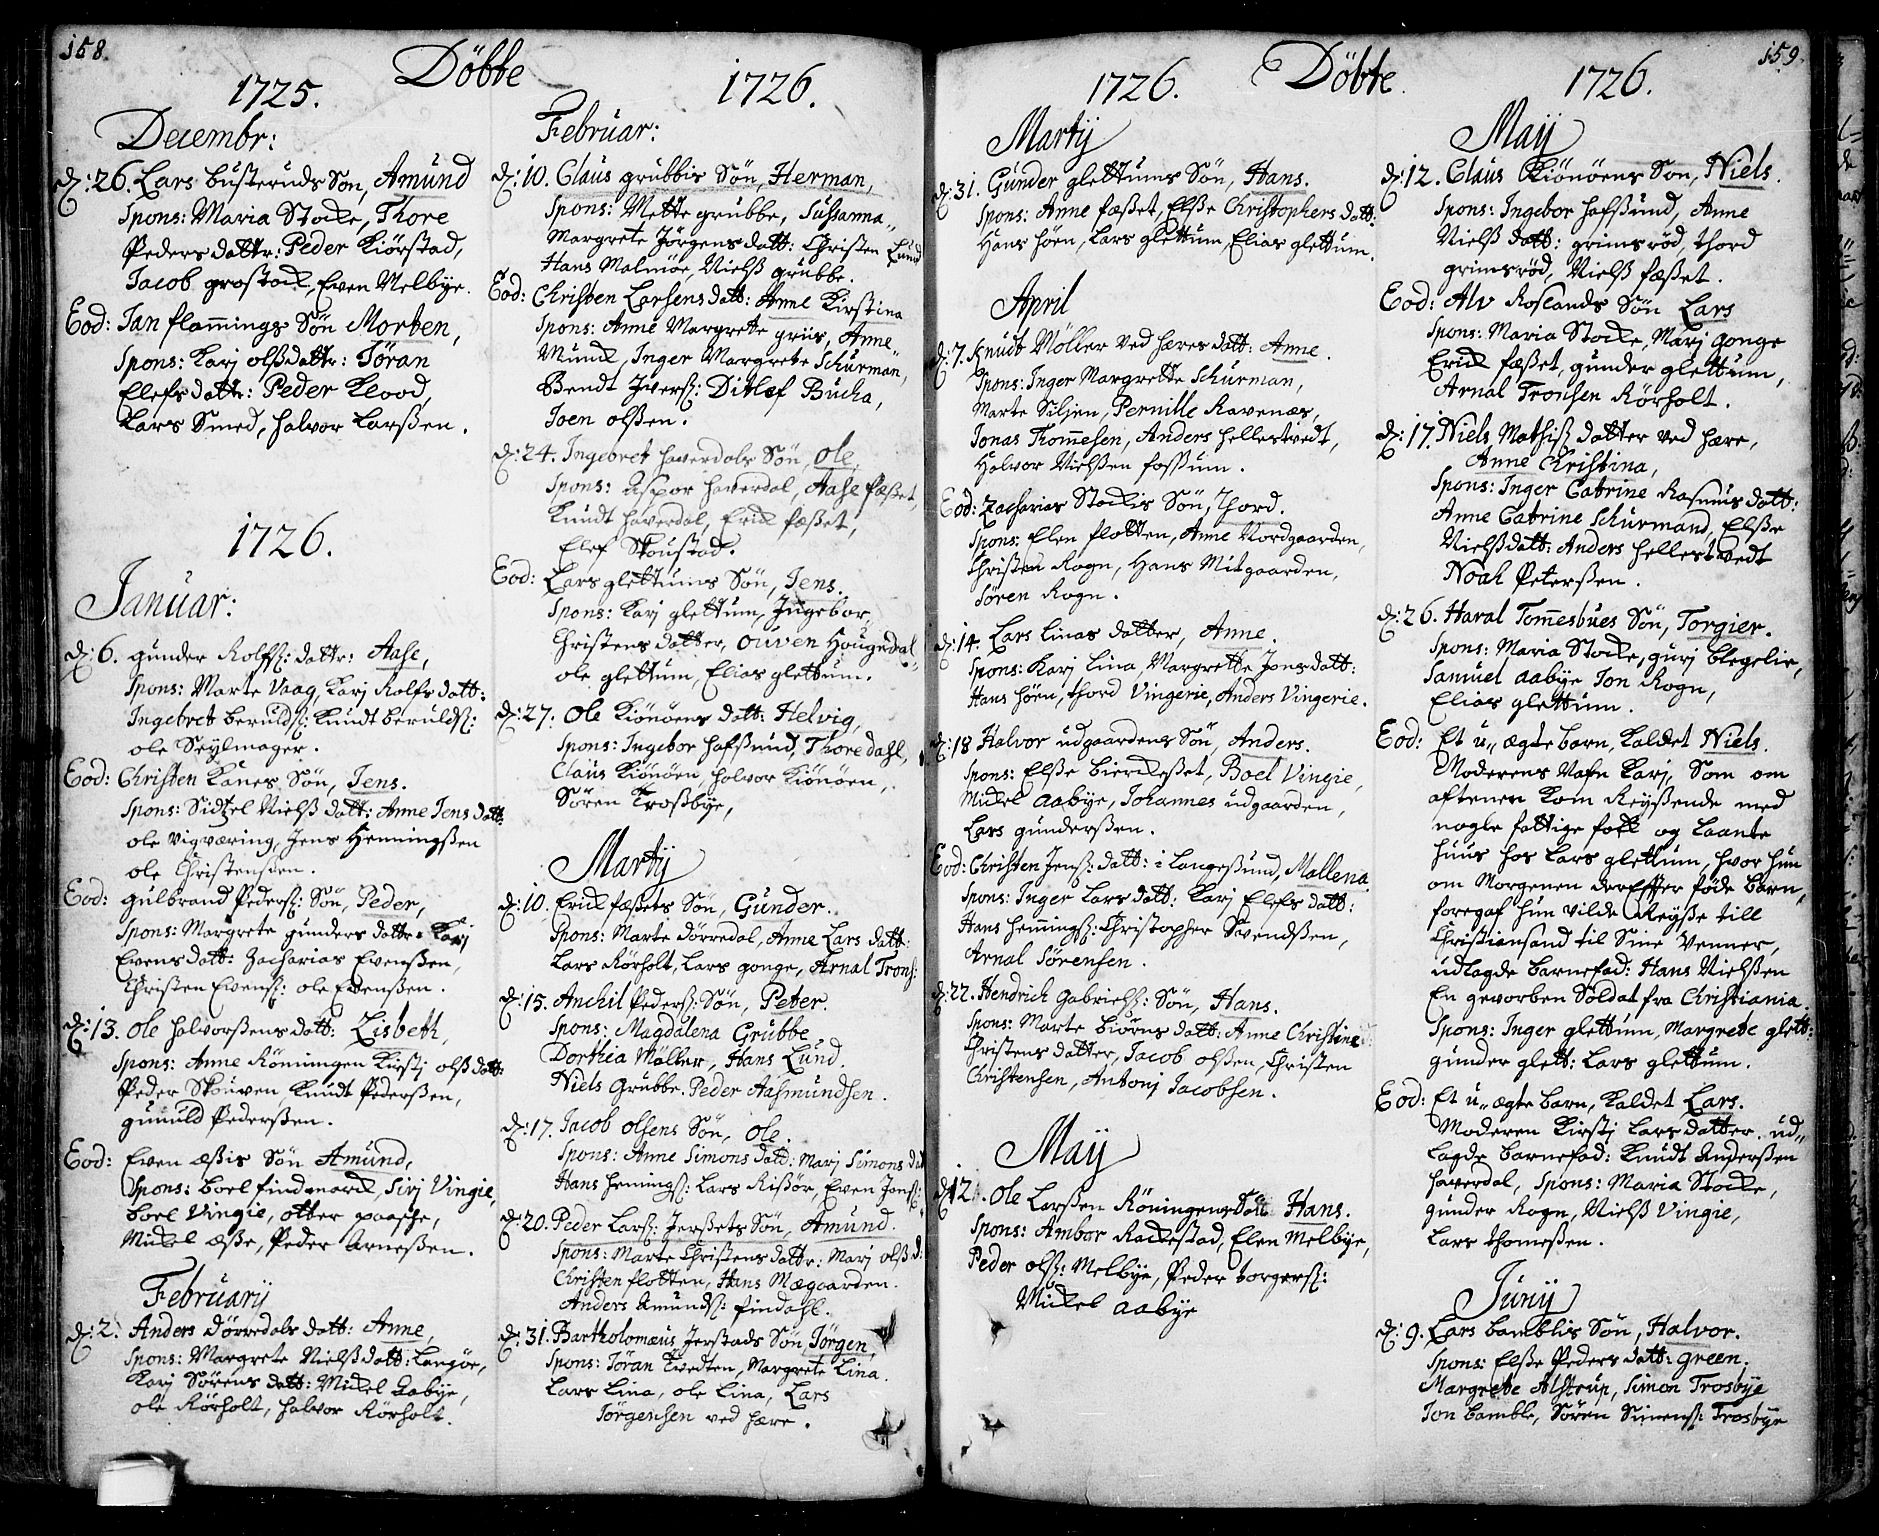 158.
Döbte
1725.
Decembr:
d: 26. Lars busteruds Søn, Amund
Spons: Maria Stocke, Thore
Peders dattr: Peder Kiörstad,
Jacob grostock, Even Melbye.
Eod: Jan flammings Søn Morten,
Spons: Karj olsdattr: Jöran
Elefs dattr: Peder Klood,
Lars Smed, halvor Larssen.
1726.
Januar:
d: 6. gunder Rolfs: dattr: Aase,
Spons: Marte Vaag, Karj Rolfs datt:
Ingebret beruldss: Knudt beruldss:
ole Seylmager.
Eod: Christen Kanes Søn, Jens.
Spons: Sidtzel Nielss datt: Anne Jens datt:
ole vigværing, Jens Henningssen
ole Christensen.
Eod: gulbrand Peders: Søn, Peder,
Spons: Margrete gunders datter: Karj
Evens datt: Zacharias Evenssen,
Christen Evens: ole Evenssen.
d: 13. ole halvorssens datt: Lisbeth,
Spons: Anne Röningen Kirstj olss datt:
Peder Skouven, Knudt Pederssen,
gunuld Pederssen.
Eod: Even æsis Søn Amund,
Spons: boel findmarck, Sirj Vingie,
boel Vingie, otter paasche,
Mickel æsse, Peder Arnessen.
Februarij
d: 2. Anders dörredals datt: Anne,
Spons: Margrete Nielss datt: Langöe,
Karj Sörens datt: Mickel Aabye,
ole Rörholt, halvor Rörholt.
1726.
Februar:
d: 10. Claus grubbis Søn, Herman,
Spons: Mette grubbe, Sussanna,,
Margrete Jörgens datt: Christen Lund
Hans Malmöe, Nielss grubbe.
Eod: Christen Larsens datt: Anne Kirstina
Spons: Anne Margrete griis, Anne,,
Munck, Inger Margrete Schurman,
Bendt Ivers: Ditlef Bucha,
Joen olssen.
d: 24. Ingebret haverdals Søn, ole,
Spons: Aspor haverdal, Aase fæsset,
Knudt haverdal, Erick fæsset,
Elef Skoustad.
Eod: Lars glettums Søn, Jens.
Spons: Karj glettum, Ingebor,,
Christens datter, ouven Hougedal,,
ole glettum, Elias glettum.
d: 27. ole Kiönöens datt: Helvig,
Spons: Ingebor hafssund, Thore dahl,
Claus Kiönöen, halvor Kiönöen,
Sören Trossbye,
Martij
d: 10. Erick fæssets Søn, Gunder.
Spons: Marte dörredal, Anne Lars datt:
Lars Rörholt, Lars gonge, Arnal Trons:
d: 15. Anchil Peders: Søn, Peter.
Spons: Magdalena Grubbe
Dorthia Møller, Hans Lund.
Niels Grubbe. Peder Aasmundsen.
d: 17. Jacob olsens Søn, ole.
Spons: Anne Simons datt: Marj Simons dat
Hans Hemings: Lars Rissör, Even Jons:
d: 20. Peder Lars: Jerssets Søn, Amund.
Spons: Marte Christens dattr: Marj olss d:
Christen flotten, Hans Mægaarden.
Anders Amunds: findahl.
d: 31. Bartholomæus Jerstads Søn Jörgen,
Spons: Jöran Tvedten, Margrete Lina.
Lars Lina, ole Lina, Lars
Jörgensen ved hære.
159.
Döbte.
1726.
Martij
d: 31. Gunder glettums Søn, Hans.
Spons: Anne fæsset, Elsse Christophers datt:
Hans höen, Lars glettum, Elias glettum.
April
d: 7. Knudt Möller ved hæres datt: Anne.
Spons: Inger Margrette Schurman,
Marte Siljen, Pernille Ravenæs,
Jonas Thommesen, Anders hellestvedt,
Halvor Nielssen fossum.
Eod: Zacharias Stockis Søn, Thord.
Spons: Elen flotten, Anne Nordgaarden,
Christen Rogn, Hans Mitgaarden,
Sören Rogn.
d: 14. Lars Linas datter, Anne.
Spons: Karj Lina Margrette Jons datt:
Hans höen, Thord Vingerie, Anders Vingerie.
d: 18 Halvor udgaardens Søn, Anders.
Spons: Elsse bierckesset, Boel Vingie,
Mickel Aabye, Johannes udgaarden,
Lars gunderssen.
Eod: Christen Jens: datt: i Langessund, Mallena
Spons: Inger Lars datt: Karj Elefs datt:
Hans Hemmings: Christopher Svendssen,
Arnal Sörensen.
d: 22. Hendrich Gabriels: Søn, Hans.
Spons: Marte biörns datt: Anne Christine
Christens datter, Jacob olssen, Christen
Christensen, Antonj Jacobsen.
Maij
d: 12. ole Larssen Röningens Søn Hans.
Spons: Ambor Rackestad, Elen Melbye,
Peder olss: Melbye, Peder torgerss:
Mickel aabye
1726.
Maij
d: 12. Claus Kiönöens Søn, Niels.
Spons: Ingebor hafssund, Anne
Nielss datt: grimsröd, thord
grimsröd, Nielss fæsset.
Eod: Alv Roslands Søn Lars
Spons: Maria Stocke, Marj gonge
Erick fæsset, gunder glettum,
Arnal Tronsen Rörholt.
d: 17. Niels Mathiss datter ved hære,
Anne Christina,
Spons: Inger Catrine Rasmus datt:
Anne Catrine Schurmand, Elsse
Nielssdatt: Anders hellestvedt
Noah Peterssen.
d: 26. Haral Tommesbues Søn, Torgier.
Spons: Maria Stocke, gurj blegelie,
Samuel aabye Jon Rogn,
Elias glettum.
Eod: Et u,, ægte barn, kaldet Niels.
Moderens Nafn Karj, Som om
aftenen kom Reyssende med
nogle fattige folk og laante
huus hos Lars glettum, hvor hun
om Morgenen der Efter föde barn,
foregaf hun vilde Reysse till
Christiansand til Sine Venner,
udlagde barnefad: Hans Nielssen
En gevorben Soldat fra Christiania.
Spons: Inger glettum, Margrete glett:
gunder glett: Lars glettum.
Eod: Et u,, ægte barn, kaldet Lars.
Moderen Kirstj Lars datter. ud,,
lagde barnefad: Knudt Anderssen
haverdal, Spons: Maria Stocke,
gunder Rogn, Nielss Vingie,
Lars thomessen.
Junij
d: 9. Lars bamblis Søn, Halvor.
Spons: Elsse Peders datt: green.
Margrete Alstrup, Simon Trosbye
Jon bamble, Sören Simens: Trosbye